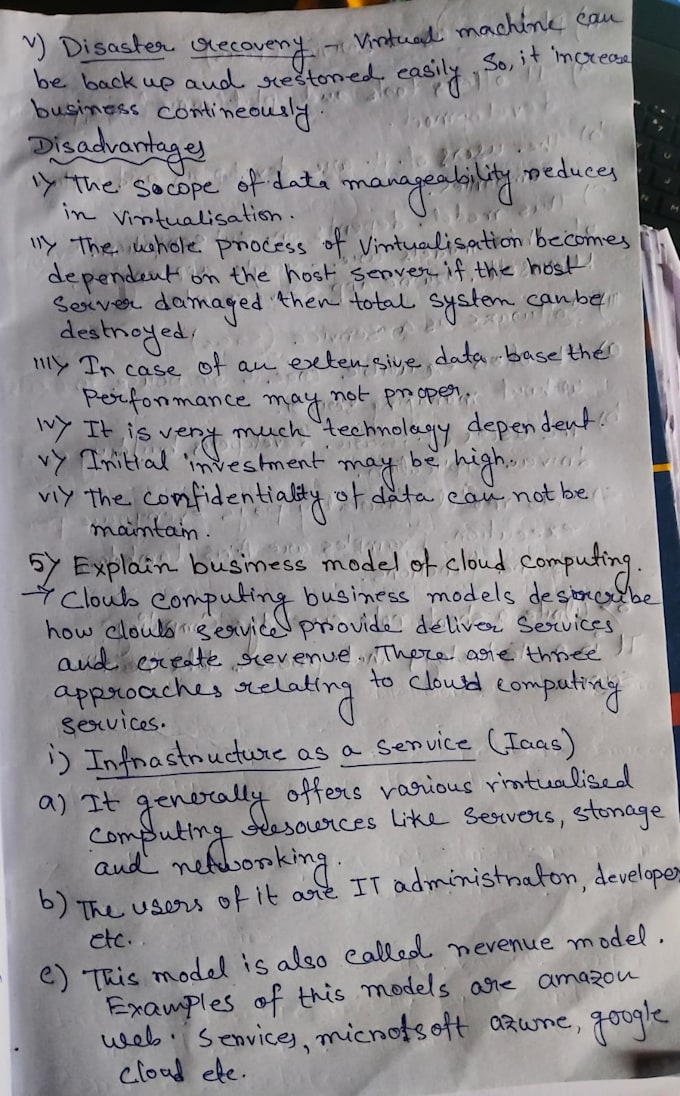 v) Disaster recovery → Virtual machine can
be back up and restored easily, So, it increase
business contineously.
Disadvantages
i) The socope of data manageability reduces
in virtualisation.
ii) The whole process of Virtualisation becomes
dependent on the host server, if the host
Server damaged then total system can be
destroyed.
iii) In case of an extensive data base the
Performance may not proper.
iv) It is very much technology dependent.
v) Initial investment may be high.
vi) The confidentiality of data can not be
maintain.
5) Explain business model of cloud computing.
→ Cloub computing business models describe
how cloub service provide deliver Services
and create revenue. There are three
approaches relating to cloud computing
services.
i) Infrastructure as a service (Iaas)
a) It generally offers various virtualised
computing resources like servers, storage
and networking.
b) The users of it are IT administrator, developer
etc.
c) This model is also called revenue model.
Examples of this models are amazon
web services, microtsoft azure, google
cloud etc.